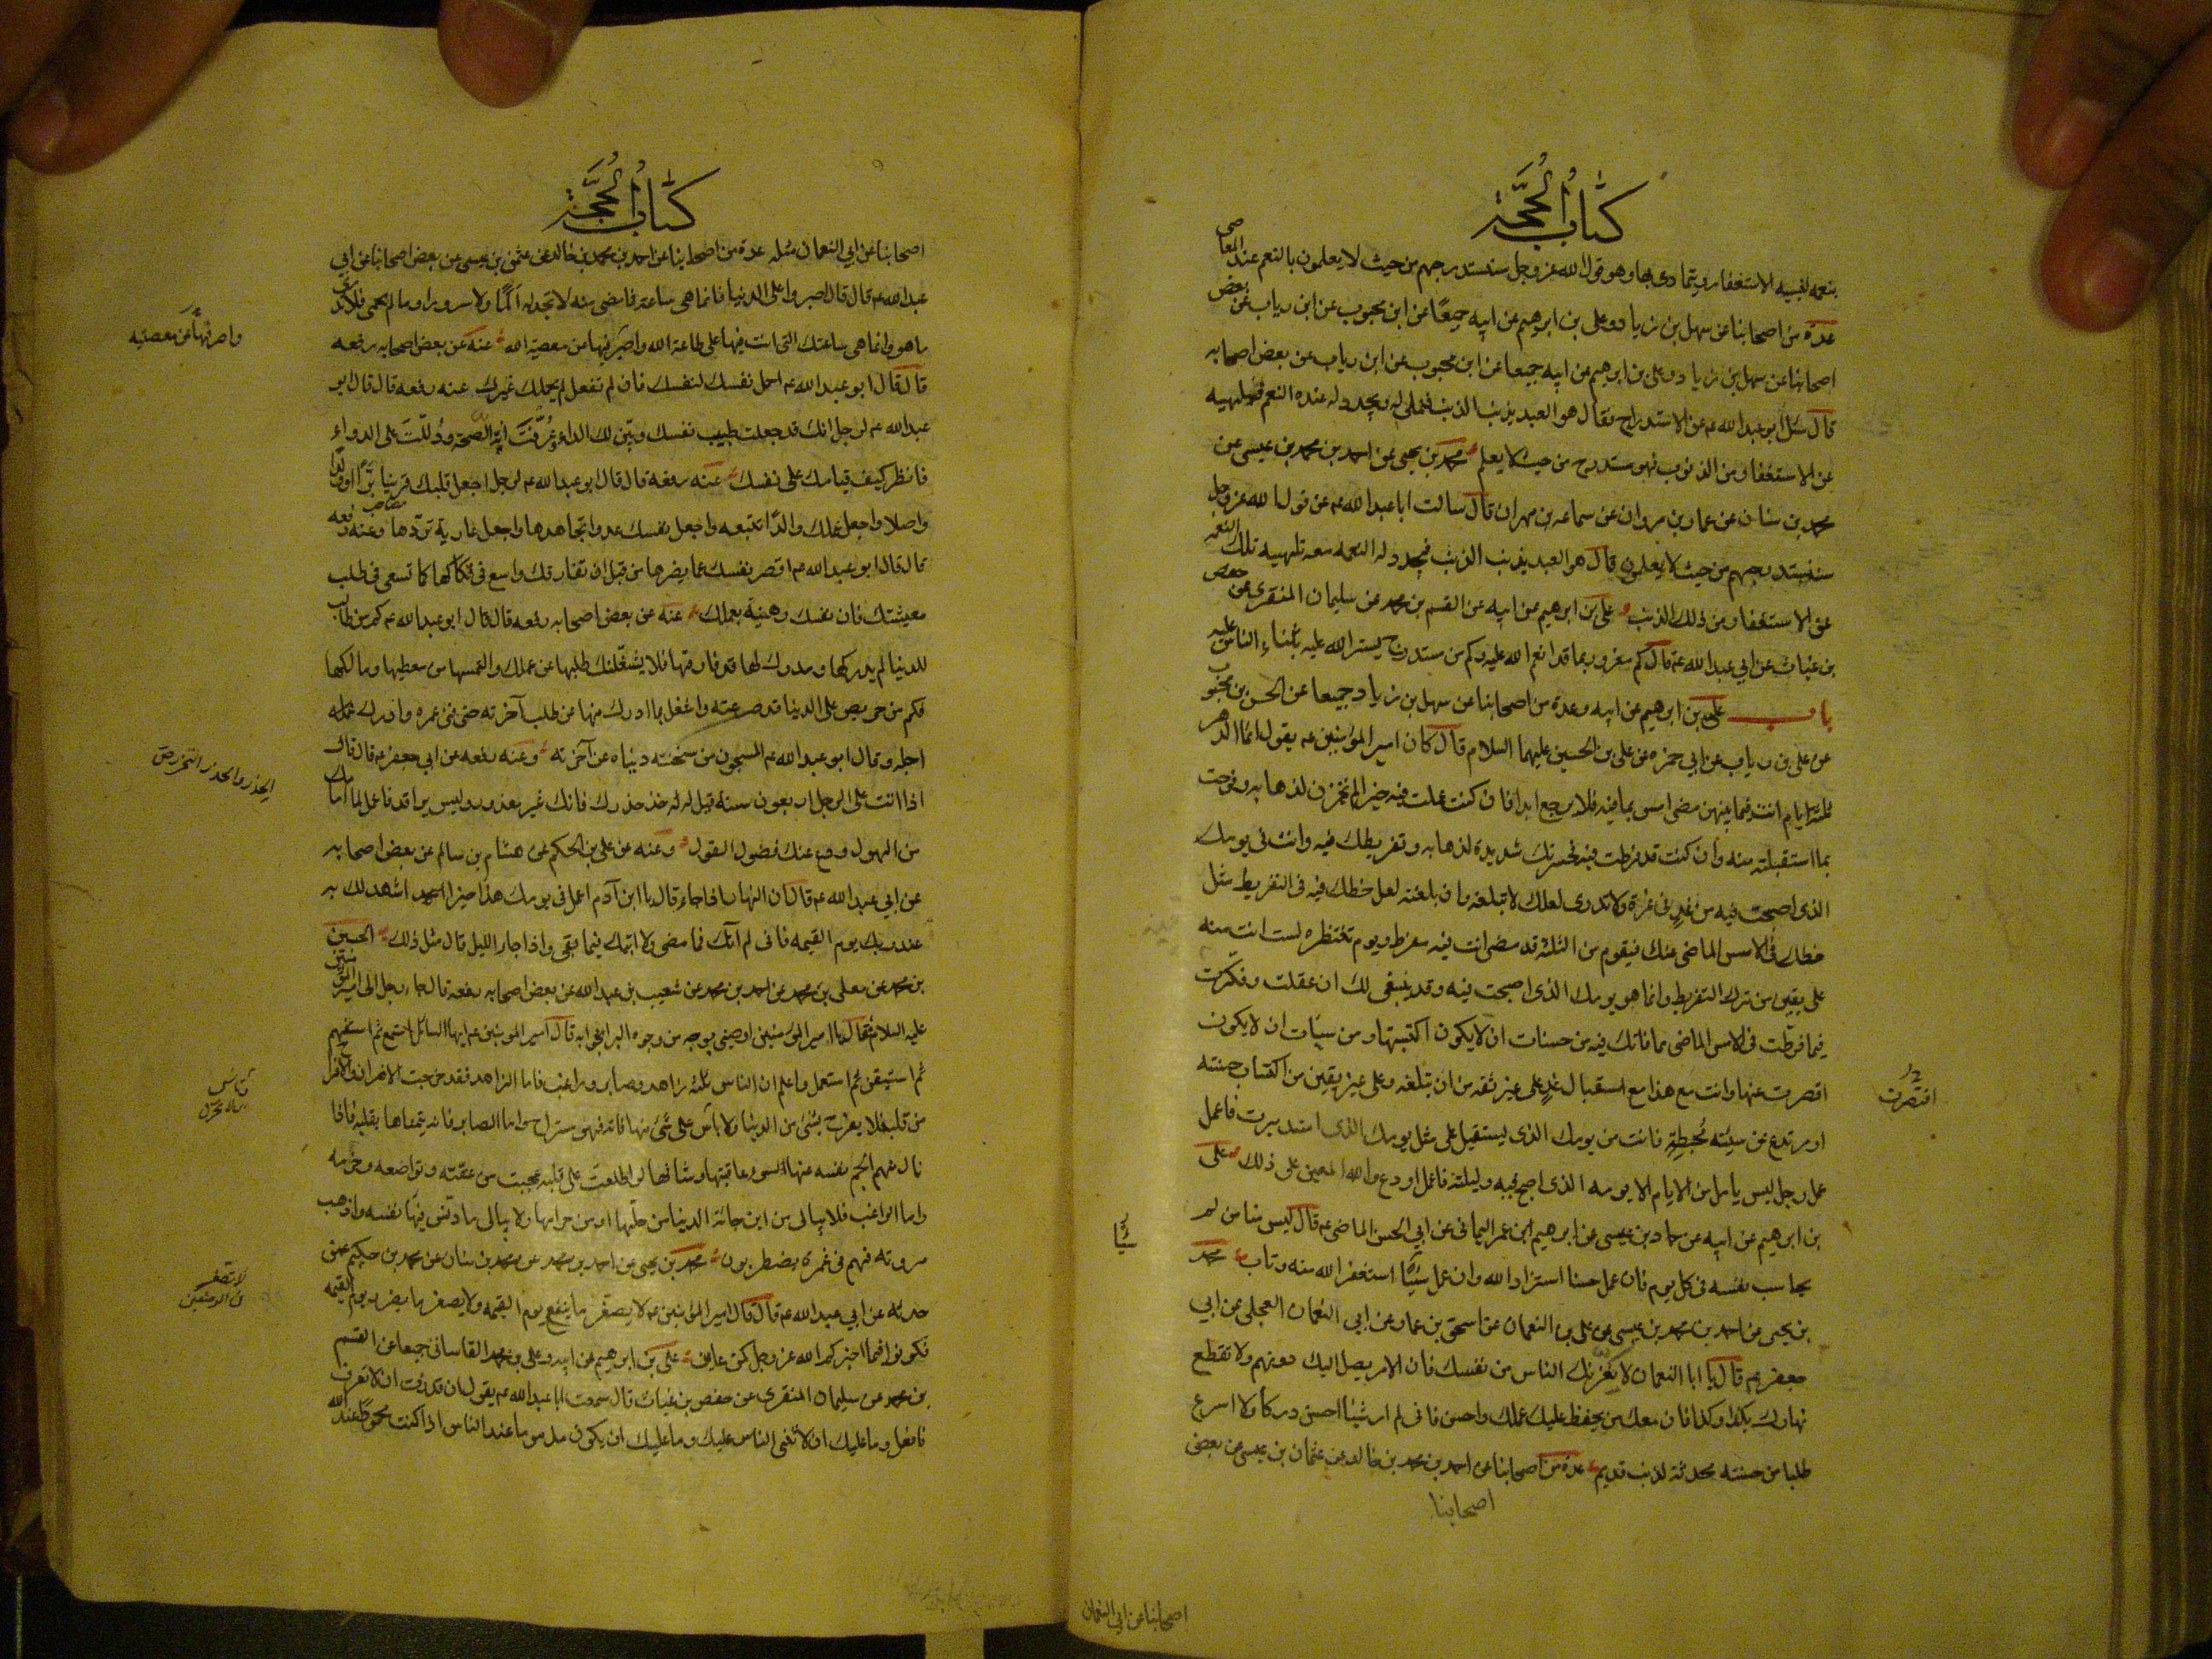 كتاب الحجة
بنعمة لينسيه الاستغفار ويتمادى بها وهو قول الله عز وجل سنستدرجهم من حيث لا يعلمون بالنعم عند المعاصى
عدة من اصحابنا عن سهل بن زياد وعلى بن ابرهيم عن ابيه جميعًا عن ابن محبوب عن ابن رياب عن بعض
اصحابنا عن سهل بن زياد وعلى بن ابرهيم عن ابيه جميعا عن ابن محبوب عن ابن رياب عن بعض اصحابه
قال سئل ابو عبد الله عم عن الاستدراج فقال هو العبد يذنب الذنب فيملى له ويجدد له عنده النعم فيلهيه
عن الاستغفار من الذنوب فهو مستدرج من حيث لا يعلم محمد بن يحيى عن احمد بن محمد بن عيسى عن
محمد بن سنان عن عمار بن مروان عن سماعه بن مهران قال سالت ابا عبد الله عم عن قول الله عز وجل
سنستدرجهم من حيث لا يعلمون قال هو العبد يذنب الذنب فيجدد له النعمه معه تلهييه تلك النعمه
عن الاستغفار من ذلك الذنب على بن ابرهيم عن ابيه عن القسم بن محمد عن سليمان المنقرى عن حفص
بن غياث عن ابي عبد الله عم قال كم مغرور بما قد انعم الله عليه وكم من مستدرج يستر الله عليه بثناء الناس عليه
باب على بن ابرهيم عن ابيه وعدة من اصحابنا عن سهل بن زياد جميعا عن الحسن بن محبوب
عن على بن رياب عن ابي حمزه عن على بن الحسين عليهما السلام قال كان امير المؤمنين عم يقول انما الدهر
ثلثة ايام انت فيما بينهن مضى امس بما فيه فلا يرجع ابدا فان كنت عملت فيه خيرا لم تحزن لذهابه وفرحت
بما استقبلته منه وان كنت قد فرطت فيه فحسرتك شديدة لذهابه وتفريطك فيه وانت فى يومك
الذى اصبحت فيه من غدٍ فى غرة ولا تدرى لعلك لا تبلغه وان بلغته لعل حظك فيه فى التفريط مثل
حظك فى الامس الماضى عنك فيوم من الثلثة قد مضى انت فيه مفرط ويوم تنتظره لست انت منه
على يقين من ترك التفريط وانما هو يومك الذى اصبحت فيه وقد ينبغى لك ان عقلت وفكرت
فيما فرطت فى الامس الماضى مما فاتك فيه من حسنات ان لا يكون اكتسبتها ومن سيئات ان لا يكون
اقصرت عنها وانت مع هذا مع استقبال غدٍ على غير ثقه من ان تبلغه وعلى غير يقين من اكتساب حسنته
اقتصرت
او مرتدع عن سيئته محبطةٍ فانت من يومك الذى يستقبل على مثل يومك الذى استدبرت فاعمل
عمل رجل ليس يامل من الايام الا يومه الذى اصبح فيه وليلته فاعمل او دع والله المعين على ذلك على
بن ابرهيم عن ابيه عن حماد بن عيسى عن ابرهيم ابن عمر اليمانى عن ابي الحسن الماضى عم قال ليس منا من لم
يحاسب نفسه فى كل يوم فان عمل حسنا استزاد الله وان عمل سيئًا استغفر الله منه وتاب محمد
سيئًا
بن يحيى عن احمد بن محمد بن عيسى عن على بن النعمان عن اسحق بن عمار عن ابي النعمان العجلى عن ابي
جعفر عم قال يا ابا النعمان لا يغرنك الناس من نفسك فان الامر يصل اليك دونهم ولا تقطع
نهارك بكذا وكذا فان معك من يحفظ عليك عملك واحسن فانى لم ار شيئا احسن دركا ولا اسرع
طلبا من حسنته محدثة لذنب قديم عدة من اصحابنا عن احمد بن محمد بن خالد عن عثمان بن عيسى عن بعض
اصحابنا
اصحابنا عن ابي النعمان
كتاب الحجة
اصحابنا عن ابي النعمان مثله عدة من اصحابنا عن احمد بن محمد بن خالد عن عثمن بن عيسى عن بعض اصحابنا عن ابي
عبد الله عم قال قال اصبروا على الدنيا فانما هى ساعة فما مضى منه لا تجد له المًا ولا سرورا وما لم يجئ فلا تدرى
ما هو وانما هى ساعتك التى انت فيها على طاعة الله واصبر فيها عن معصية الله عنه عن بعض اصحابه رفعه
واصبر فيها عن معصيته
قال قال ابو عبد الله عم احمل نفسك لنفسك فان لم تفعل لم يحملك غيرك عنه رفعه قال قال ابو
عبد الله عم لرجل انك قد جعلت طبيب نفسك وبيّن لك الداء وعُرِّفت آية الصحة ودُللت على الدواء
فانظر كيف قيامك على نفسك عنه رفعه قال قال ابو عبد الله عم لرجل اجعل قلبك قرينا برّا او ولدًا
واصلا واجعل عملك والدًا تتبعه واجعل نفسك عدوا تجاهدها واجعل مالك عارية تردها وعنه رفعه
قال قال ابو عبد الله عم اقصر نفسك عما يضرها من قبل ان تفارقك واسع فى فكاكها كما تسعى فى طلب
معيشتك فان نفسك رهينة بعملك عنه عن بعض اصحابه رفعه قال قال ابو عبد الله عم كم من طالب
للدنيا لم يدركها ومدرك لها قد فارقها فلا يشغلنك طلبها عن عملك والتمسها من معطيها ومالكها
فكم من حريص على الدنيا قد صرعته واشتغل بما ادرك منها عن طلب آخرته حتى فنى عمره وادركه
اجله وقال ابو عبد الله عم المسجون من سجنته دنياه عن آخرته وعنه رفعه عن ابي جعفر عم قال قال
اذا اتت على الرجل اربعون سنة قيل له خذ حذرك فانك غير معذور وليس
من الهول ودع عنك فضول القول وعنه عن على بن الحكم عن هشام بن سالم عن بعض اصحابه
عن ابي عبد الله عم قال ان النهار اذا جاء قال يا ابن آدم اعمل فى يومك هذا خيرا اشهد لك به
عند ربك يوم القيمه فانى لم آتك فما مضى ولا آتيك فيما بقى واذا جاء الليل قال مثل ذلك الحسين
بن محمد عن معلى بن محمد عن احمد بن محمد عن شعيب بن عبد الله عن بعض اصحابه رفعه قال جاء رجل الى امير المؤمنين
عليه السلام فقال يا امير المؤمنين اوصنى بوجه من وجوه البر انجو به قال امير المومنين عم ايها السائل استمع ثم استفهم
ثم استيقن ثم استعمل واعلم ان الناس ثلثة زاهد وصابر وراغب فاما الزاهد فقد خرجت الاحزان والافراح
من قلبه فلا يفرح بشئ من الدنيا ولا ياس على شئ منها فاته فهو مستراح واما الصابر فانه يتمناها بقلبه فاذا
نال منهم الجم نفسه عنها لسوء عاقبتها وشنانها لو اطلعت على قلبه عجبت من عفته وتواضعه وحزمه
واما الراغب فلا يبالى من اين جائته الدنيا من حلها او من حرامها ولا يبالى ما دنس فيها نفسه واذهب
مروته فهم فى غمرة يضطربون محمد بن يحيى عن احمد بن محمد عن محمد بن سنان عن محمد بن حكيم عمن
حدثه عن ابي عبد الله عم قال قال امير المؤمنين عم لا يصغر ما ينفع يوم القيمه ولا يصغر ما يضر يوم القيمه
فكونوا فيما اخبركم الله عز وجل كمن عاين على بن ابرهيم عن ابيه وعلى بن محمد القاسانى جميعا عن القسم
بن محمد عن سليمان المنقرى عن حفص بن غياث قال سمعت ابا عبد الله عم يقول ان قدرت ان لا تعرف
فافعل وما عليك ان لا يثنى الناس عليك وما عليك ان يكون مذموما عند الناس اذا كنت محمودًا عند الله